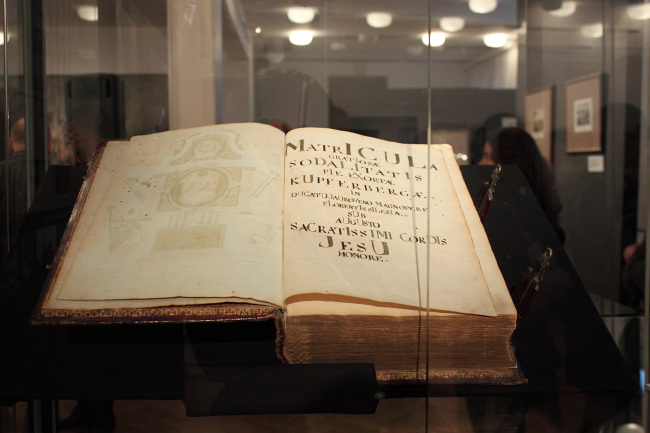 MATRICULA
GRATIOSÆ
SODALITATIS
PIE EXORTÆ
KUPFERBERGÆ
IN
DUCATU JAUROVENO MAGNOPERE
FLORENTIS SILESIÆ
SUB
AUGUSTO
SACRATISSIMI CORDIS
JESU
HONORE